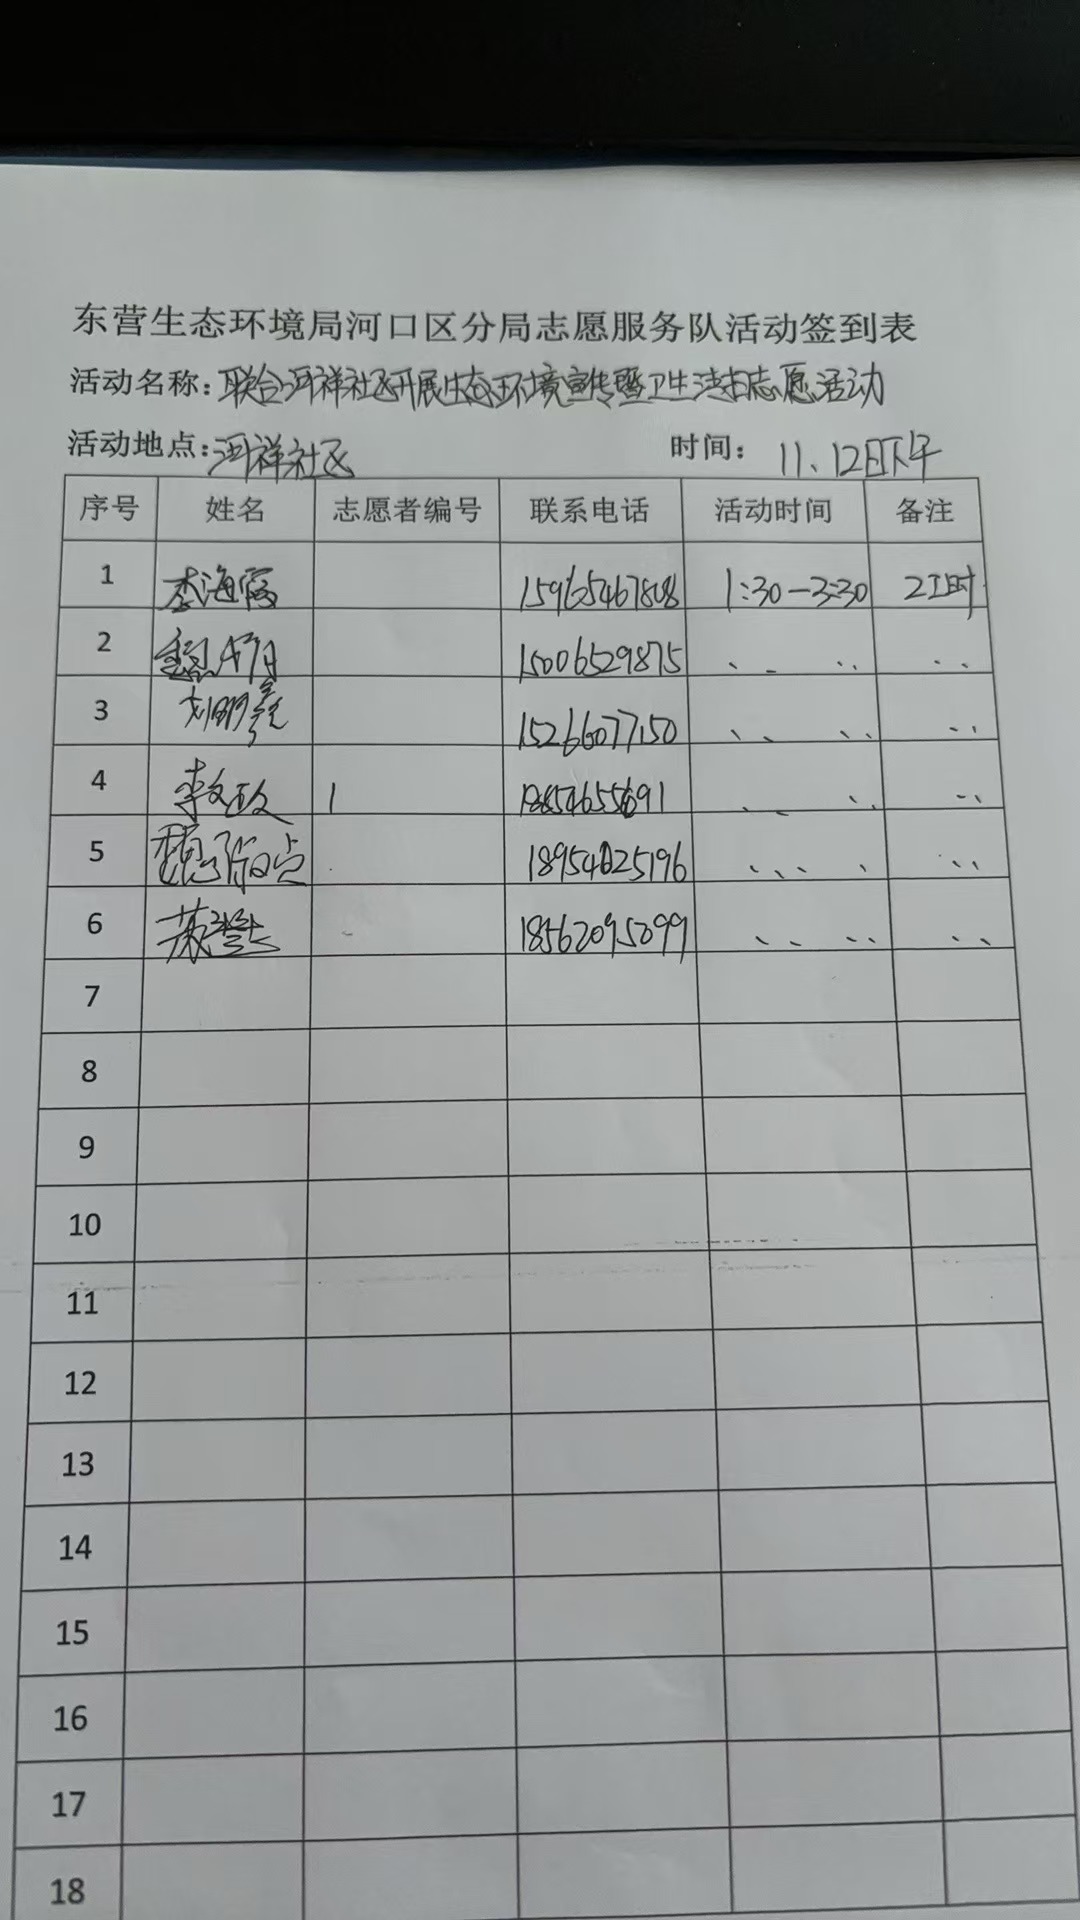 东营生态环境局河口区分局志愿服务队活动签到表
活动名称：联合河祥社区开展生态环境宣传暨卫生清扫志愿活动
活动地点：河祥社区 时间： 11、12日下午
序号 姓名 志愿者编号 联系电话 活动时间 备注
1 李海霞 15965467808 1:30－3:30 2工时
2 15006529875
3 刘鹏鑫 15266077150
4 李文政 18854655691
5 魏 18954025196
6 18562095099
7
8
9
10
11
12
13
14
15
16
17
18